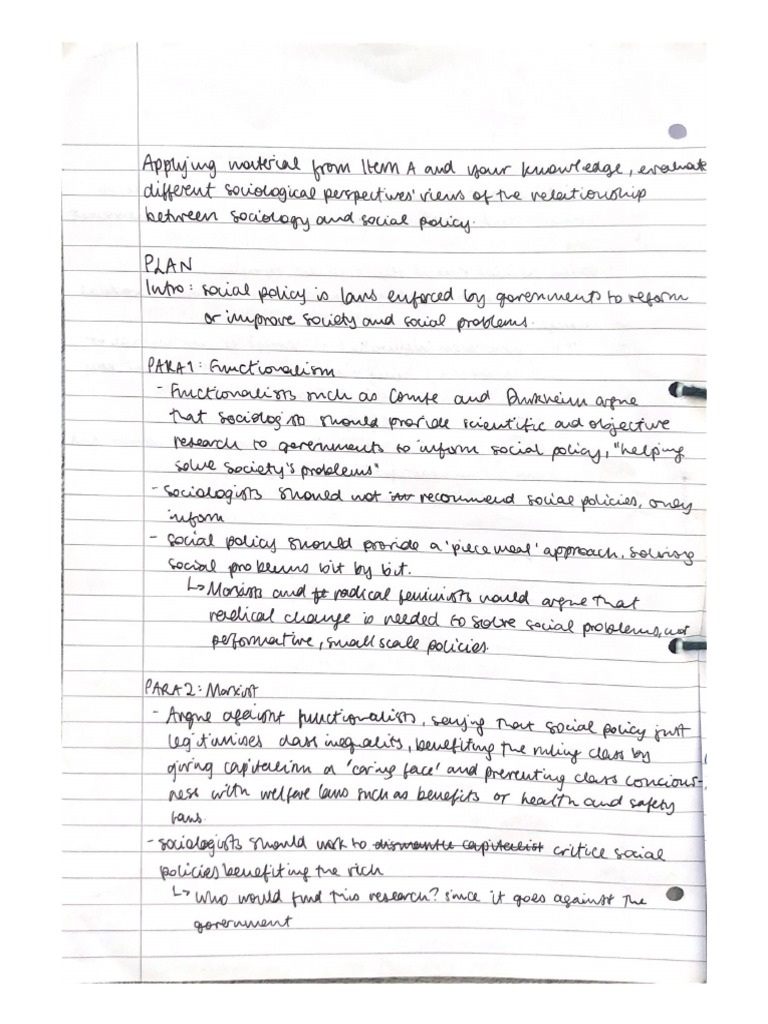 Applying material from Item A and your knowledge, evaluate
different sociological perspectives' views of the relationship
between sociology and social policy.
PLAN
Intro: social policy is laws enforced by governments to reform
or improve society and social problems.
PARA 1: Functionalism
- Functionalists such as Comte and Durkheim argue
that sociologists should provide scientific and objective
research to governments to inform social policy, "helping
solve society's problems"
- sociologists should not recommend social policies, only
inform
- social policy should provide a 'piecemeal' approach, solving
social problems bit by bit.
↳ Marxists and radical feminists would argue that
radical change is needed to solve social problems, not
performative, small scale policies.
PARA 2: Marxist
- Argue against functionalists, saying that social policy just
legitimises class inequality, benefiting the ruling class by
giving capitalism a 'caring face' and preventing class concious-
ness with welfare laws such as benefits or health and safety
laws.
- sociologists should work to dismantle capitalist critice social
policies benefiting the rich
↳ who would fund this research? since it goes against the
government